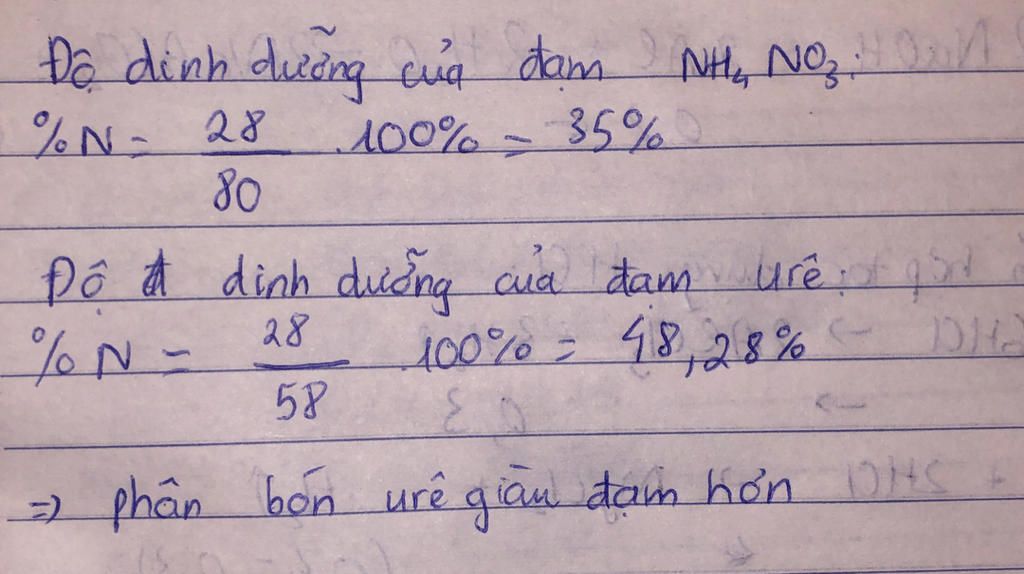 Độ dinh dưỡng của đạm NH₄NO₃:
%N = 28/80 . 100% = 35%
Độ dinh dưỡng của đạm urê:
%N = 28/58 . 100% = 48,28%
=> phân bón urê giàu đạm hơn